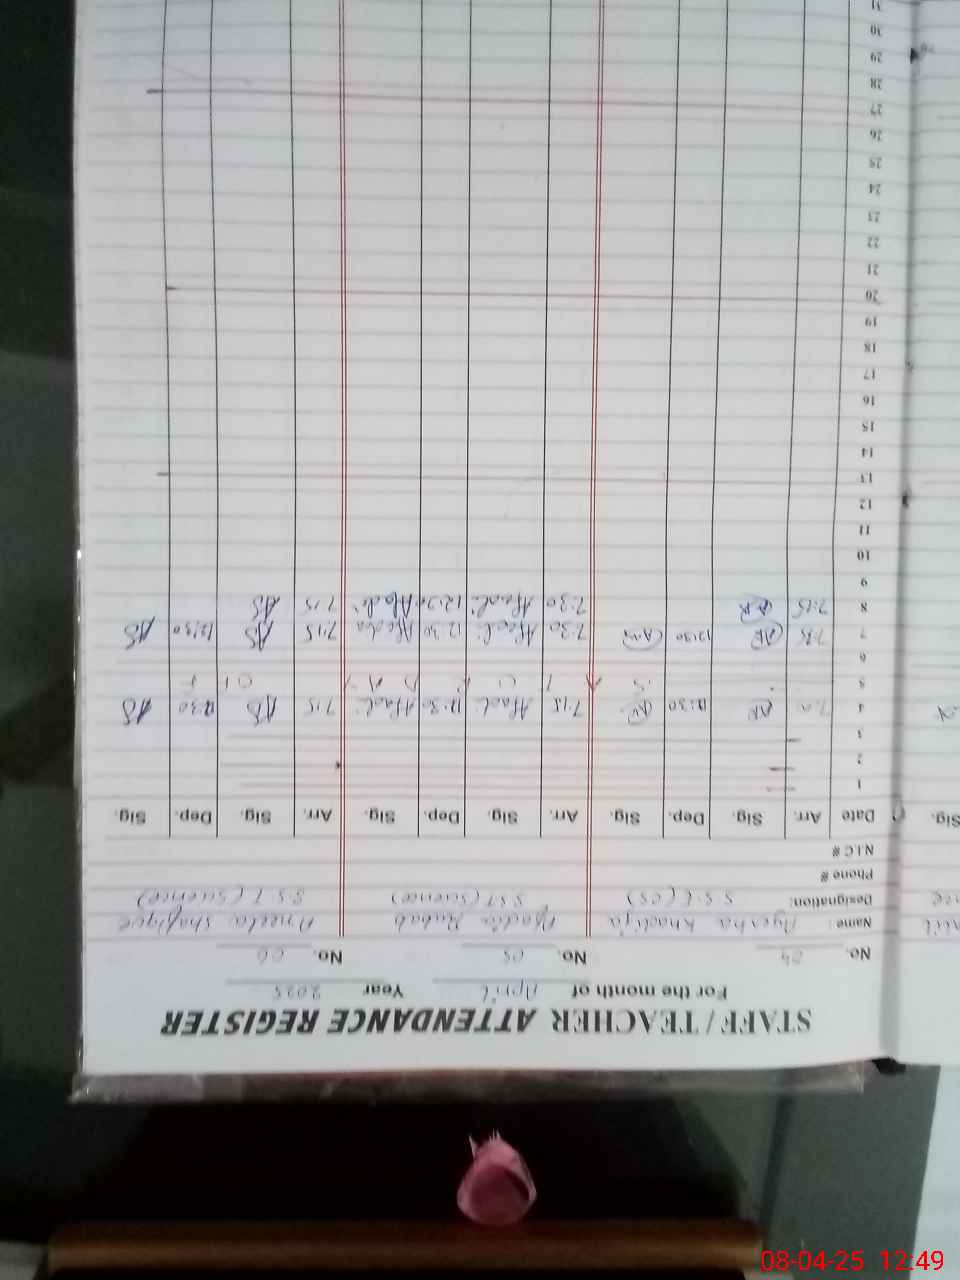 STAFF / TEACHER ATTENDANCE REGISTER
For the month of April Year 2025
No. 04 No. 05 No. 06
Name: Ayesha Khadija Afadia Rubab Aneela Shafique
Designation: S.S.E (CS) S.S.T (Science) S.S.T (Science)
Phone #
N.I.C #
Date Arr. Sig. Dep. Sig. Arr. Sig. Dep. Sig. Arr. Sig. Dep. Sig.
1
2
3
4 AR 12:30 7:15 12:30 7:15 AS 12:30 AS
5
6
7 7:15 AR 12:30 7:30 12:30 7:15 AS 12:30 AS
8 7:15 AR 7:30 7:15 AS
9
10
11
12
13
14
15
16
17
18
19
20
21
22
23
24
25
26
27
28
29
30
31
Sig.
08-04-25 12:49